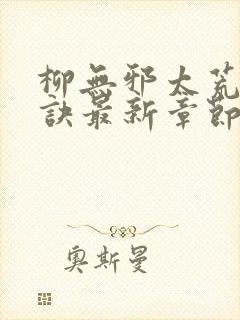 柳無邪太荒
訣最新章節
奧斯曼